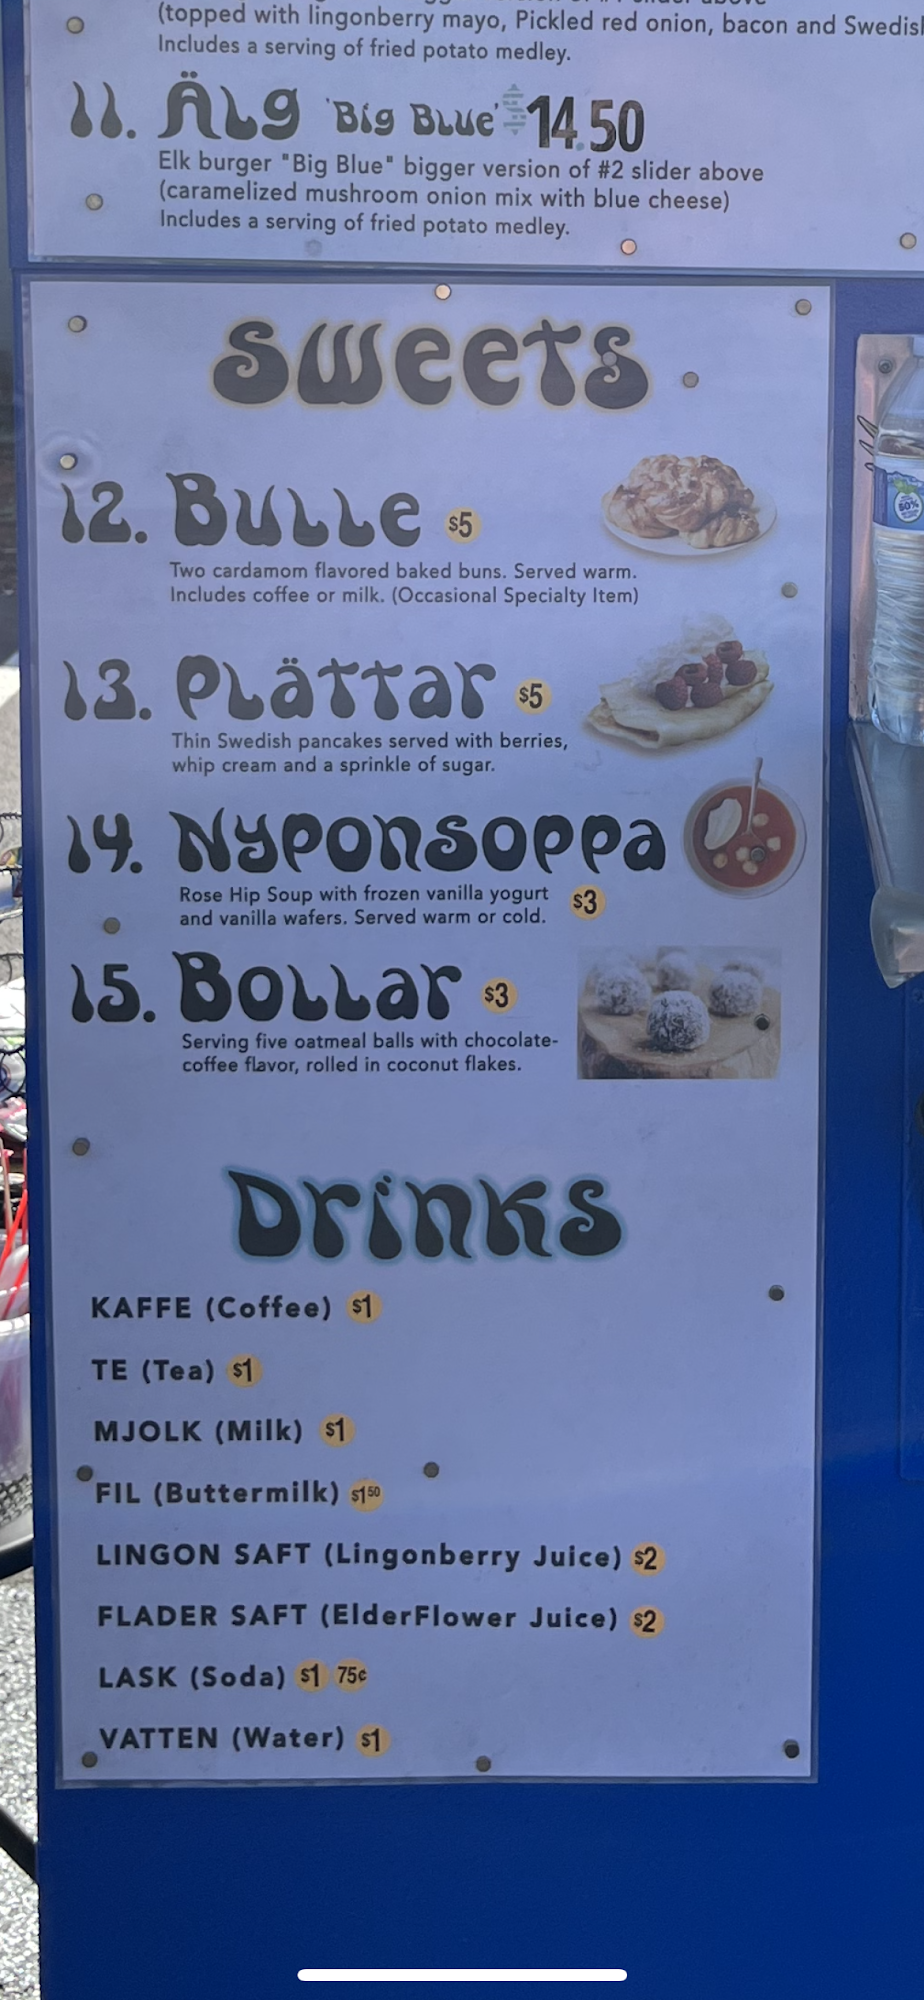 (topped with lingonberry mayo, Pickled red onion, bacon and
Includes a serving of fried potato medley.
11. Älg 'Big Blue' 14.50
Elk burger "Big Blue" bigger version of #2 slider above
(caramelized mushroom onion mix with blue cheese)
Includes a serving of fried potato medley.
Sweets
12. Bulle $5
Two cardamom flavored baked buns. Served warm.
Includes coffee or milk. (Occasional Specialty Item)
13. Plättar $5
Thin Swedish pancakes served with berries,
whip cream and a sprinkle of sugar.
14. Nyponsoppa
Rose Hip Soup with frozen vanilla yogurt $3
and vanilla wafers. Served warm or cold.
15. Bollar $3
Serving five oatmeal balls with chocolate-
coffee flavor, rolled in coconut flakes.
Drinks
KAFFE (Coffee) $1
TE (Tea) $1
MJOLK (Milk) $1
FIL (Buttermilk) $1 50
LINGON SAFT (Lingonberry Juice) $2
FLADER SAFT (ElderFlower Juice) $2
LASK (Soda) $1 75¢
VATTEN (Water) $1